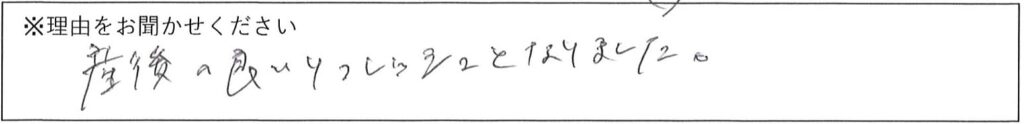 ※理由をお聞かせください
産後の良いリフレッシュとなりました。